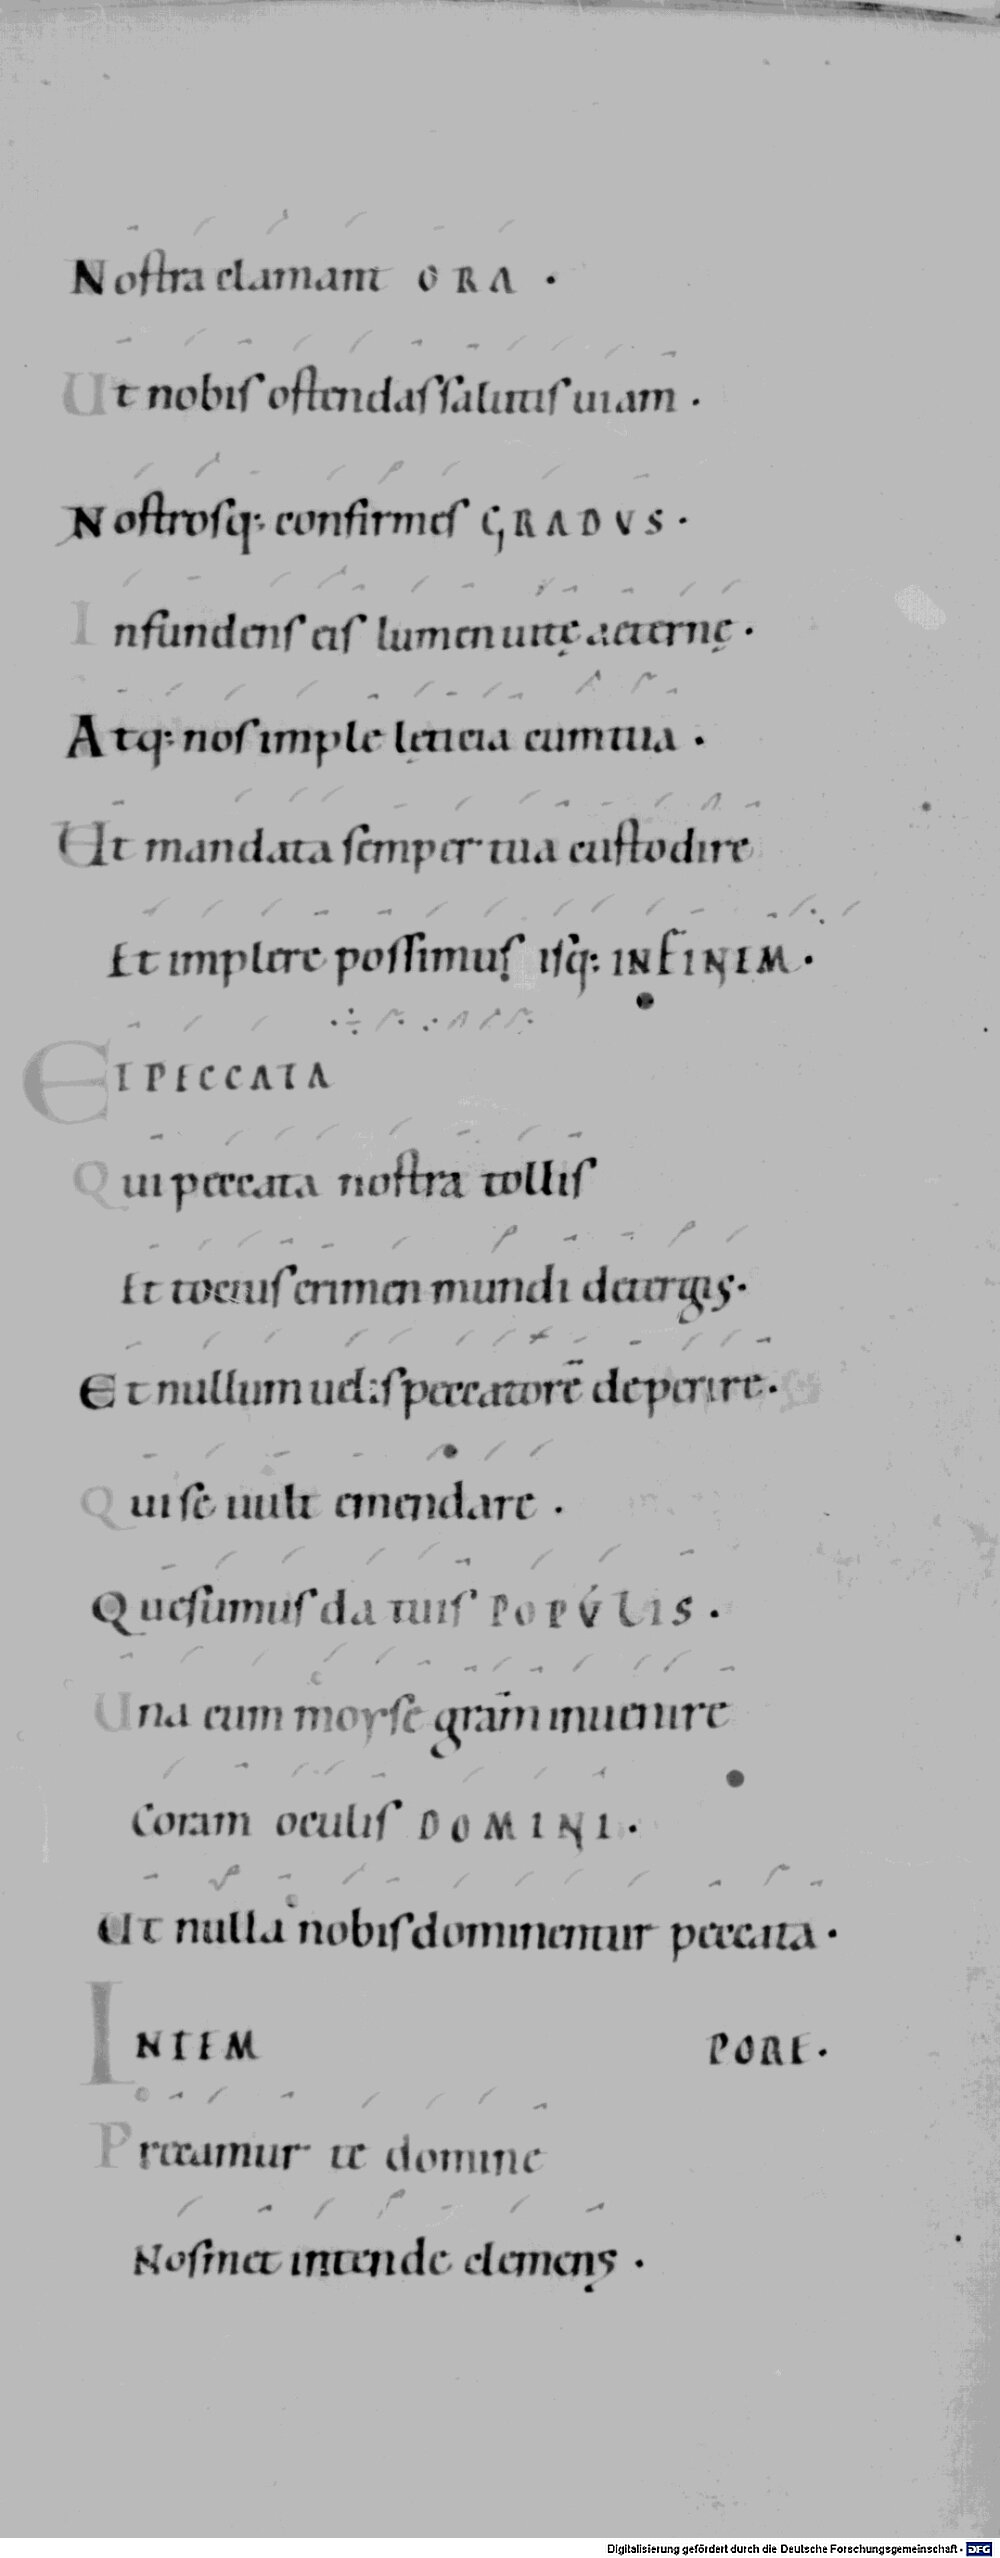 Nostra clamant ORA ·
Ut nobis ostendas salutis uiam ·
Nostrosq: confirmes GRADVS ·
Infundens eis lumen uitę aeternę ·
Atq: nos imple lęticia cum tua ·
Ut mandata semper tua custodire
Et implere possimus usq: IN FINEM ·
ET PECCATA
Qui peccata nostra tollis
Et tocius crimen mundi detergis ·
Et nullum uelis peccatorē deperire ·
Qui se uult emendare ·
Quesumus da tuis POPULIS ·
Una cum moyse gram̄ inuenire
Coram oculis DOMINI ·
Ut nulla nobis dominentur peccata ·
IN TEM PORE ·
Precamur te domine
Nosmet intende clemens ·
Digitalisierung gefördert durch die Deutsche Forschungsgemeinschaft - DFG